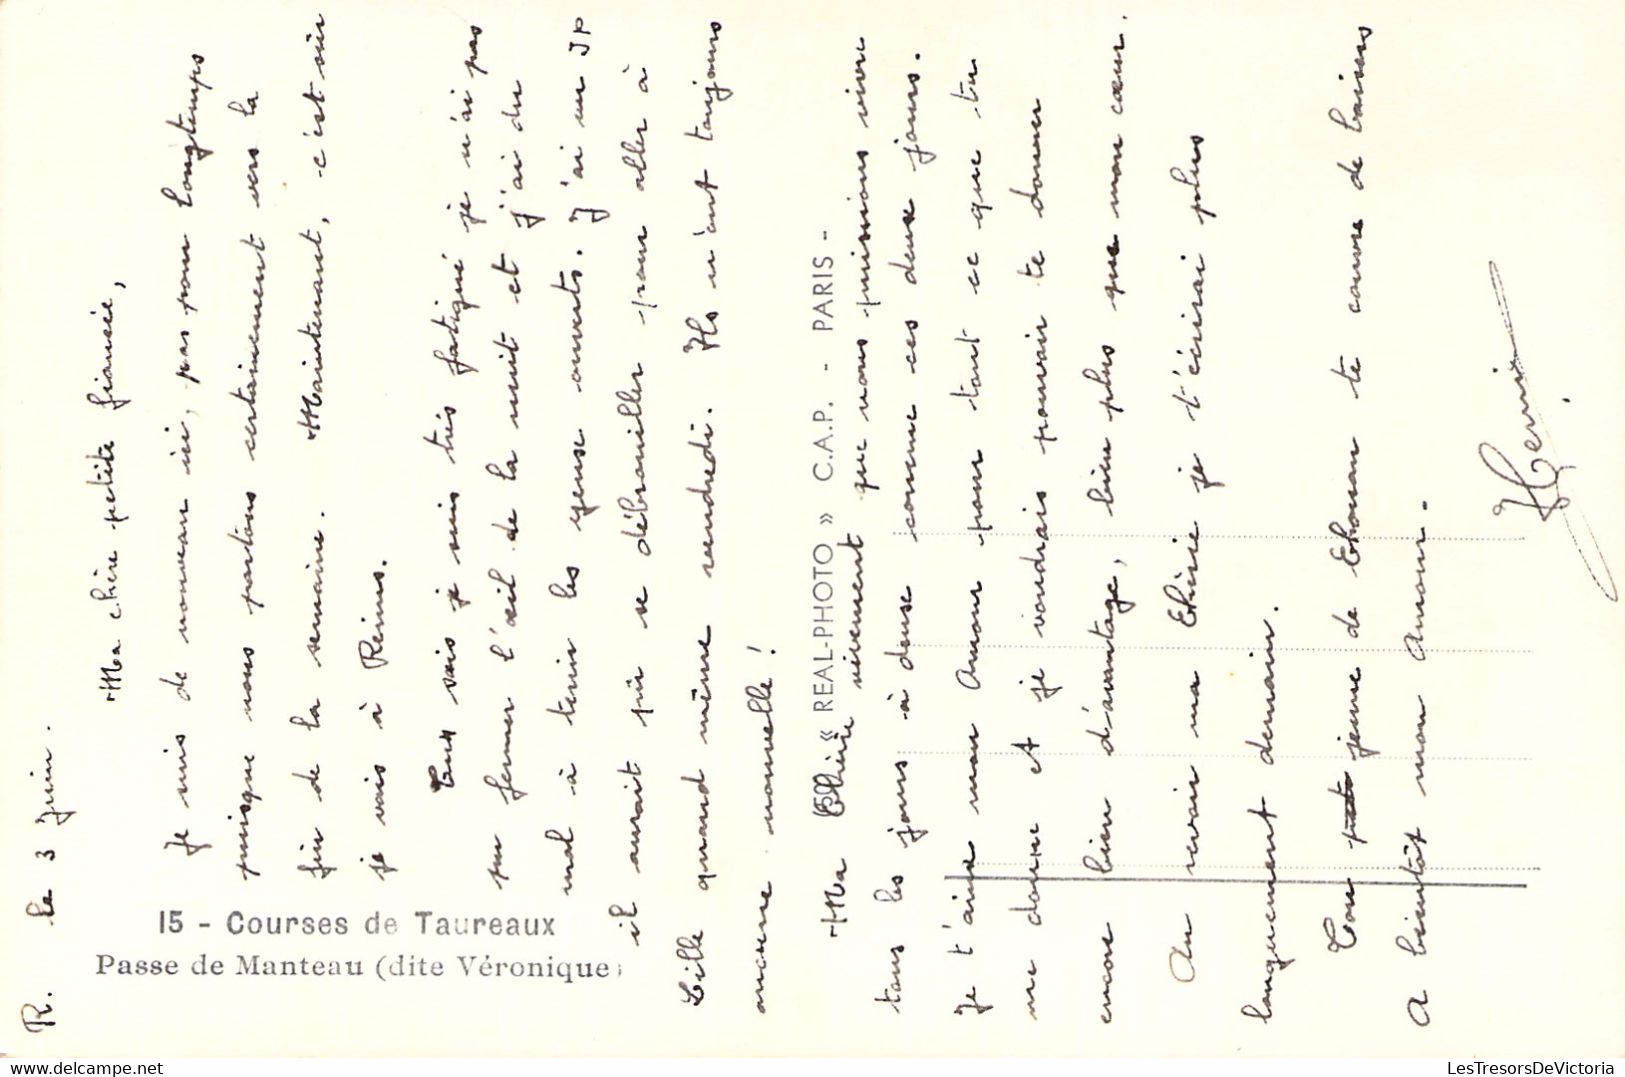 R. le 3 Juin.
Ma chère petite fiancée,
Je suis de nouveau ici, pas pour longtemps
puisque nous partons certainement vers la
fin de la semaine. Maintenant, c'est sûr
je vais à Reims.
Tu vois je suis très fatigué je n'ai pas
pu fermer l'œil de la nuit et j'ai du
mal à tenir les yeux ouverts. J'ai vu JP
il aurait pu se débrouiller pour aller à
Lille quand même vendredi. Ils n'ont toujours
aucune nouvelle!
Ma Chérie vivement que nous puissions vivre
tous les jours à deux comme ces deux jours.
Je t'aime mon Amour pour tout ce que tu
me donne et je voudrais pouvoir te donner
encore bien d'avantage, bien plus que mon cœur.
Au revoir ma Chérie je t'écrirai plus
longuement demain.
Ton jeune de te couvre de baisers
A bientôt mon Amour.
15 - Courses de Taureaux
Passe de Manteau (dite Véronique)
« REAL-PHOTO » C.A.P. - PARIS -
LesTresorsDeVictoria